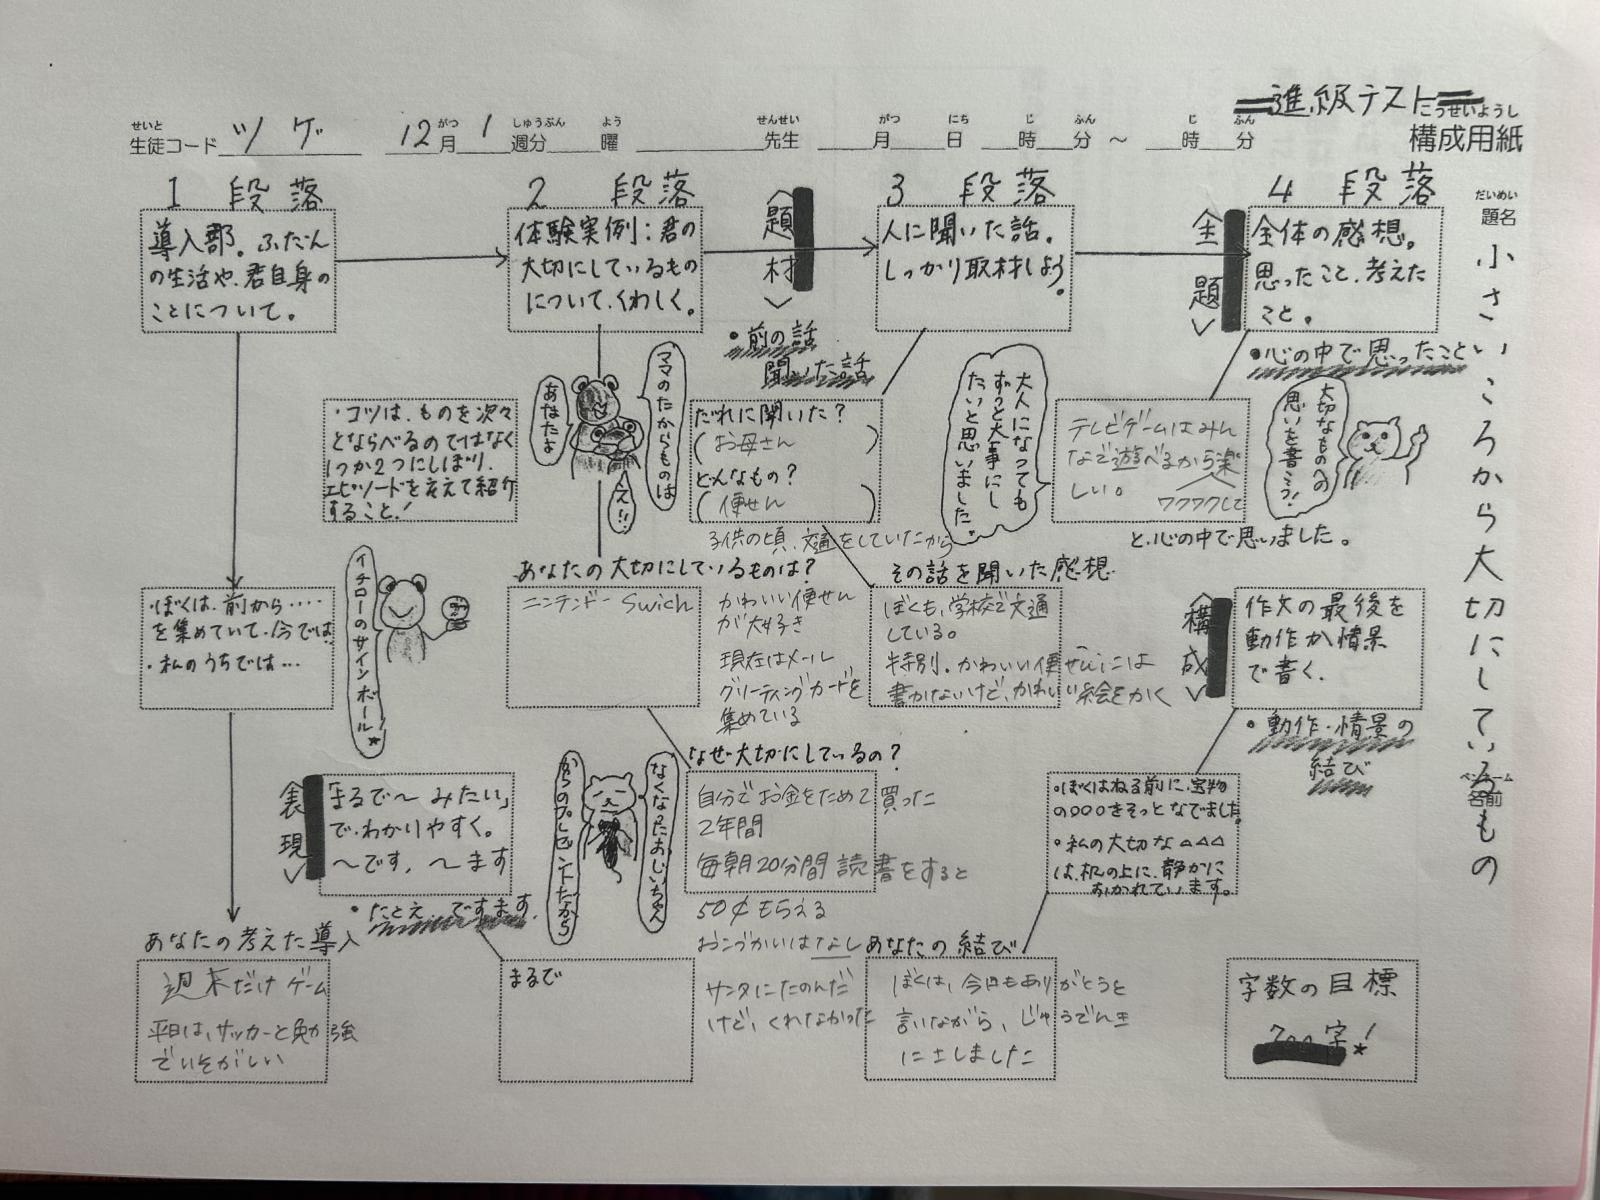 進級テスト
せいと
生徒コード ツゲ 12月 1週分 曜 先生 月 日 時 分 ～ 時 分
がつ しゅうぶん よう せんせい がつ にち じ ふん じ ふん
こうせいようし
構成用紙
だいめい
題名
小さいころから大切にしているもの
ペンネーム
名前
1 段落
導入部。ふだん
の生活や、君自身の
ことについて。
・ぼくは、前から‥‥
を集めていて、今では
・私のうちでは…
イチローのサインボール
表現
「まるで〜みたい」
で、わかりやすく。
〜です、〜ます
・たとえ、ですます
あなたの考えた導入
週末だけゲーム
平日は、サッカーと勉強
でいそがしい
2 段落
体験実例：君の
大切にしているもの
について、くわしく。
・コツは、ものを次々
とならべるのではなく
1つか2つにしぼり、
エピソードを交えて紹介
すること！
ママのたからものは
あなたよ
え!!
あなたの大切にしているものは？
ニンテンドー Swich
なぜ大切にしているの？
自分でお金をためて買った
2年間
毎朝20分間読書をすると
50¢もらえる
おこづかいはなし
サンタにたのんだ
けど、くれなかった
なくなったおじいちゃん
からのプレゼントだから
まるで
題材
・前の話
聞いた話
3 段落
人に聞いた話。
しっかり取材しよう。
だれに聞いた？
（お母さん）
どんなもの？
（便せん）
子供の頃、文通をしていたから
かわいい便せん
が大好き
現在はメール
グリーティングカードを
集めている
大人になっても
ずっと大事にし
たいと思いました。
その話を聞いた感想
ぼくも、学校で文通
している。
特別、かわいい便せんには
書かないけど、かわいい絵をかく
主題
4 段落
全体の感想。
思ったこと、考えた
こと。
・心の中で思ったこと
大切なものへの
思いを書こう！
テレビゲームはみん
なで遊べるから楽
しい。
ワクワクして
と、心の中で思いました。
構成
作文の最後を
動作か情景
で書く。
・動作・情景の
結び
・ぼくはねる前に、宝物
の○○○をそっとなでました。
・私の大切な△△△
は、机の上に、静かに
おかれています。
あなたの結び
ぼくは、今日もありがとうと
言いながら、じゅうでん
にさしました
字数の目標